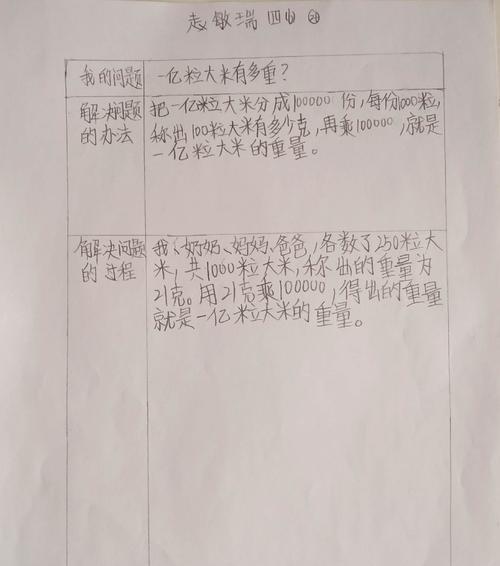 志敏瑞 四(1) 
我的问题 一亿粒大米有多重?
解决问题的办法 把一亿粒大米分成100000份,每份1000粒,
称出100粒大米有多少克,再乘100000,就是
一亿粒大米的重量。
解决问题的过程 我、奶奶、妈妈、爸爸,各数了250粒大
米,共1000粒大米,称出的重量为
21克。用21克乘100000,得出的重量
就是一亿粒大米的重量。